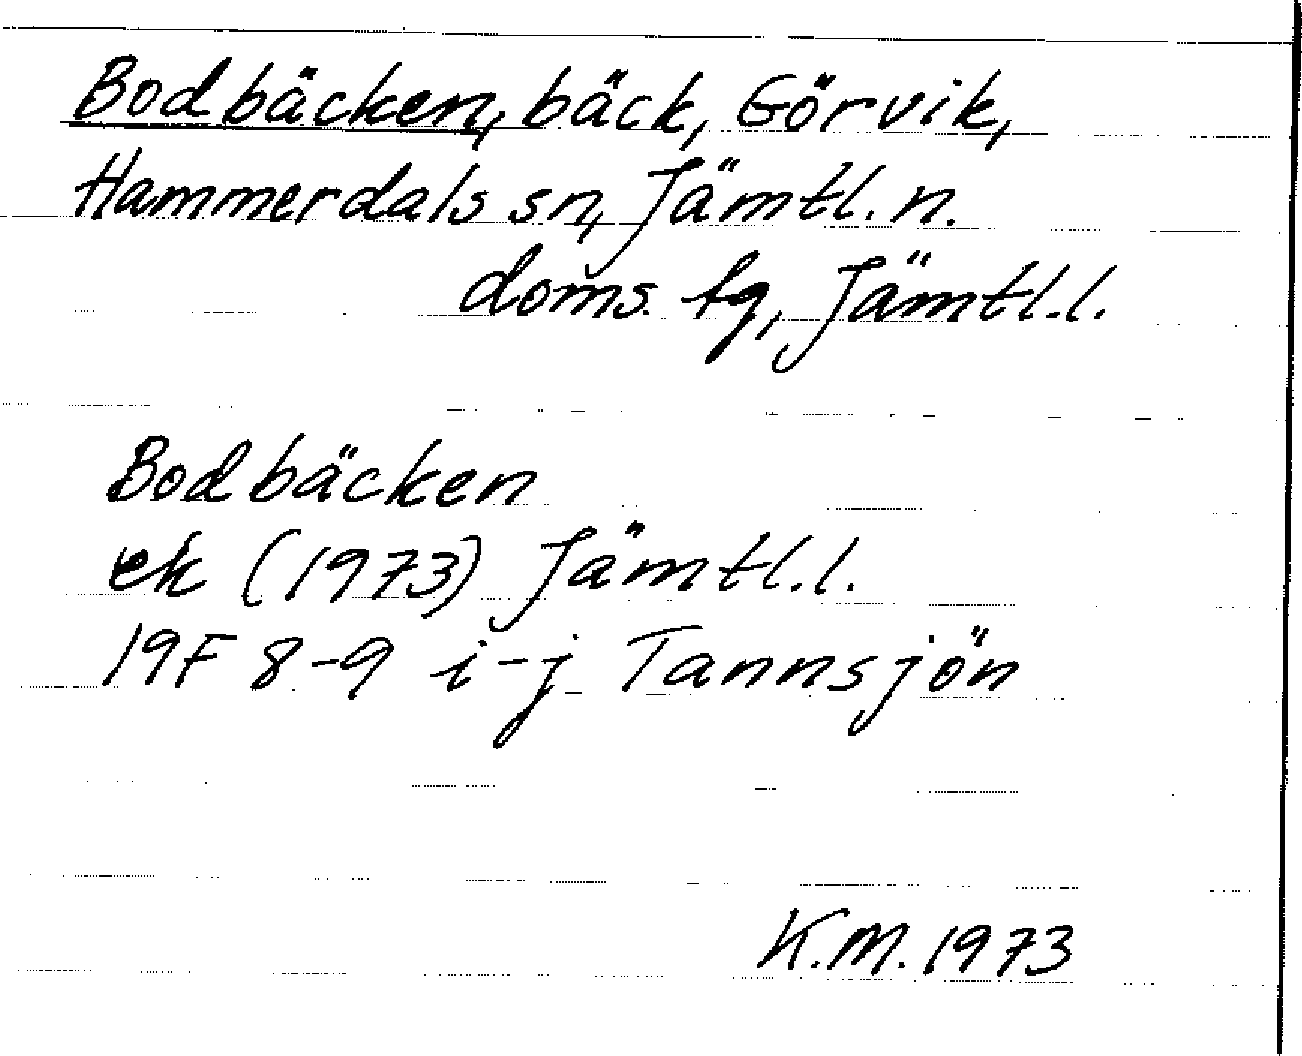 Bodbäcken, bäck, Görvik,
Hammerdals sn, Jämtl. n.
doms. fg, Jämtl. l.
Bodbäcken
ek (1973) Jämtl. l.
19F 8-9 i-j Tannsjön
K.M. 1973